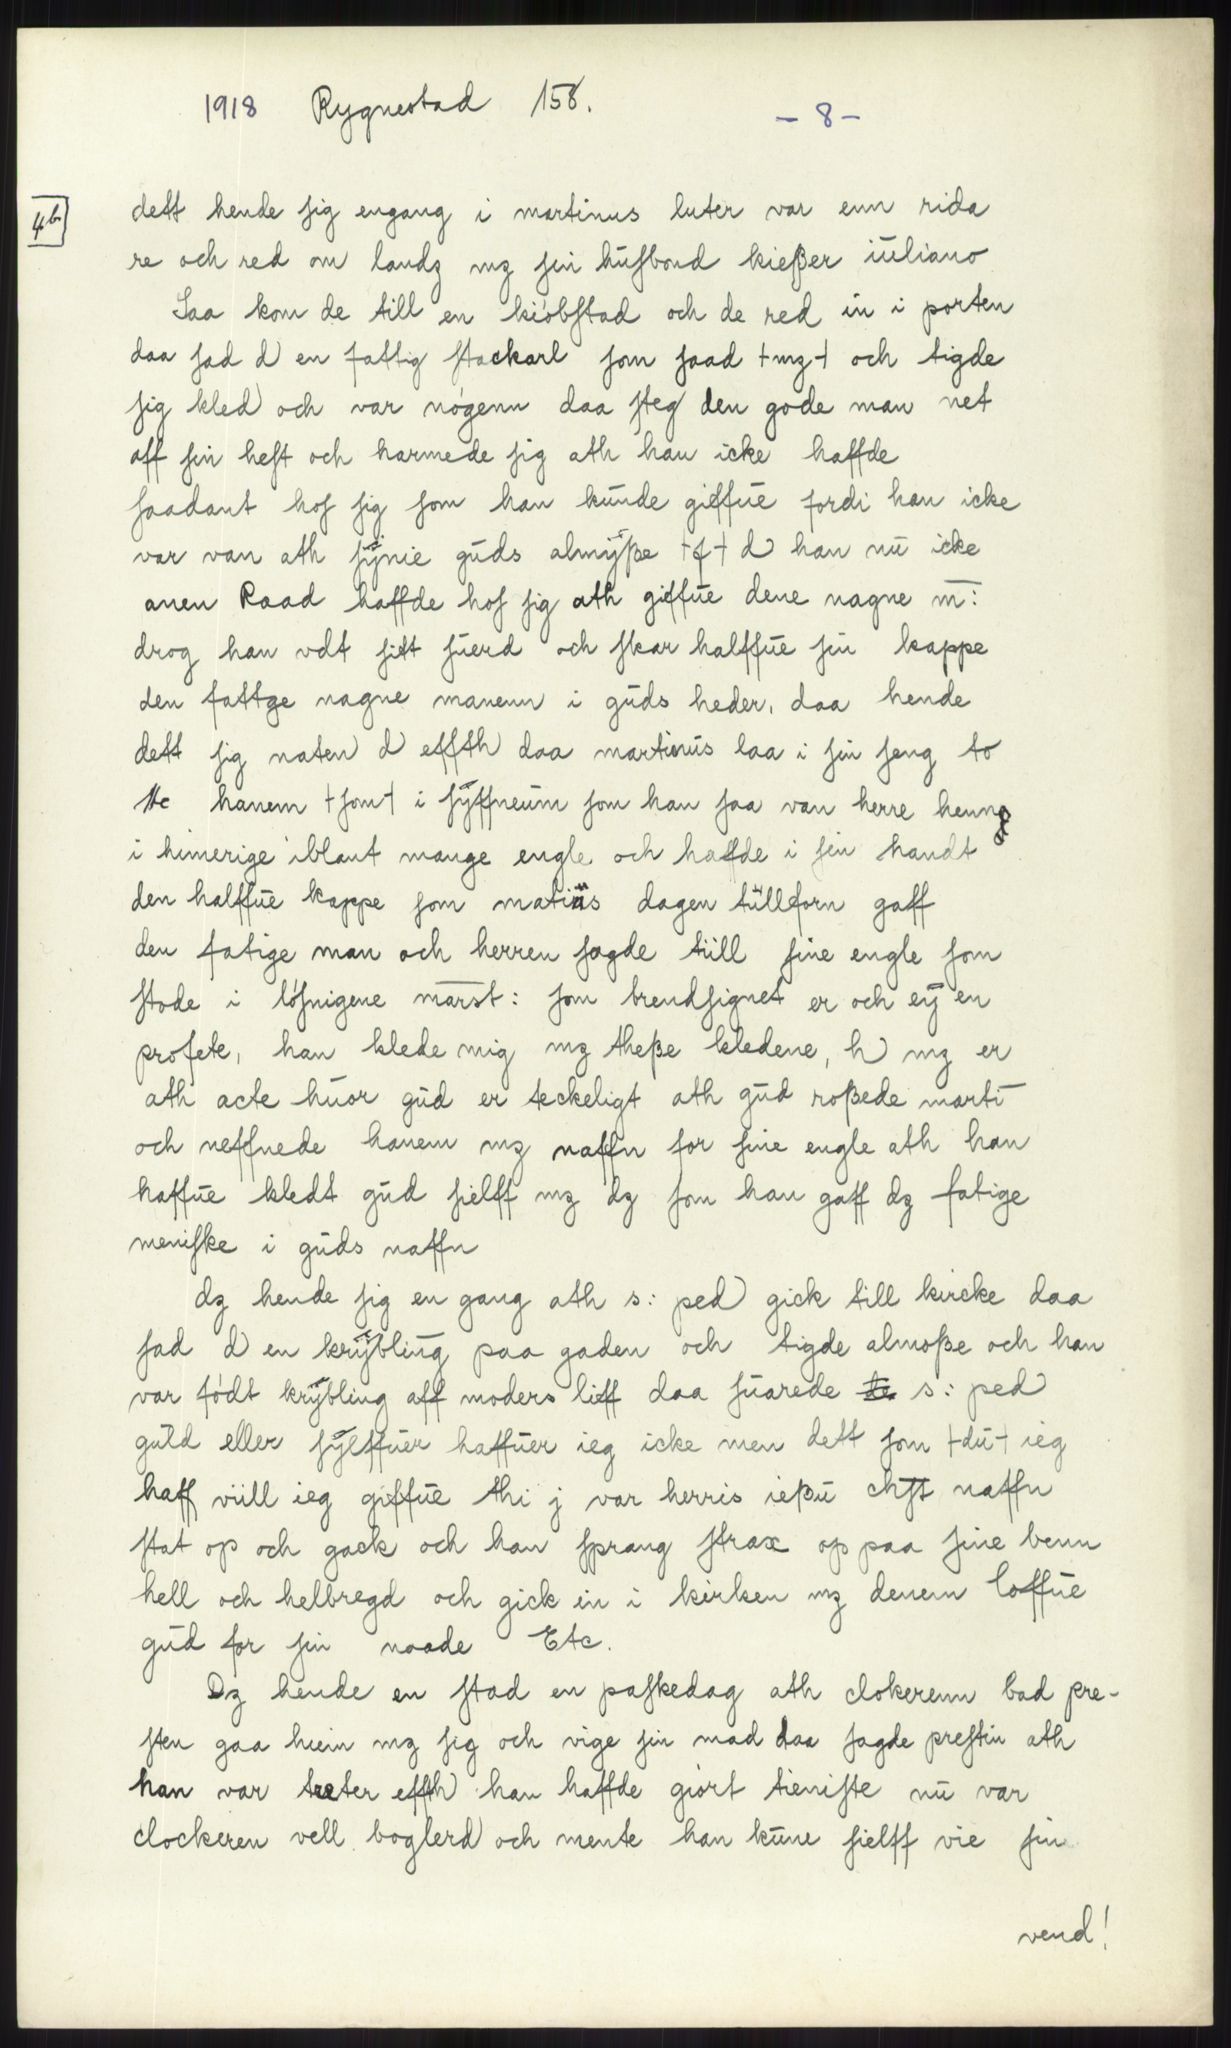 1918 Rygnestad 158.
- 8 -
4b
dett hende sig engang i martinus luter var enn rida
re och red om landz mz sin husbond kießer iuliano
Saa kom de till en kiöbstad och de red in i porten
daa sad d en fattig stackarl som saad +mz+ och tigde
sig kled och var nögenn daa steg den gode man net
aff sin hest och harmede sig ath han icke haffde
saadant hos sig som han kunde giffue fordi han icke
var van ath sÿnie guds almÿße +f+ d han nu icke
anen Raad haffde hos sig ath giffue dene nagne m̄:
drog han vdt sitt suerd och skar halffue sin kappe
den fattge nagne manenn i guds heder, daa hende
dett sig naten d effth daa martinus laa i sin seng to
tte hanem +som+ i sÿffneum som han saa van herre heung
i himerige iblant mange engle och haffde i sin handt
den halffue kappe som matius dagen tüllforn gaff
den fatige man och herren sagde tiill sine engle som
stode i löfnigene marst: som brendsignet er och eÿ en
profete, han klede mig mz theße kledene, h mz er
ath acte huor gud er teckeligt ath gud roßede marti
och neffnede hanem mz naffn for sine engle ath han
haffue kledt gud sielff mz dz som han gaff dz fatige
meniske i guds naffn
dz hende sig en gang ath s: ped gick till kircke daa
sad d en krÿbling paa gaden och tigde almoße och han
var födt krÿbling aff moders lieff daa suarede s: ped
guld eller sÿlffuer haffuer ieg icke men dett som +du+ ieg
haff viill ieg giffue thi j var herris ießu chst naffn
stat op och gack och han sprang strax op paa sine benn
hell och helbregd och gick in i kirken mz denem loffue
gud for sin naade Etc.
Dz hende en stad en paskedag ath clokerenn bad pre-
sten gaa hiem mz sig och vige sin mad daa sagde prestin ath
han var treter effth han haffde giört tieniste nu var
clockeren vell boglerd och mente han kune sielff vie sin
vend!